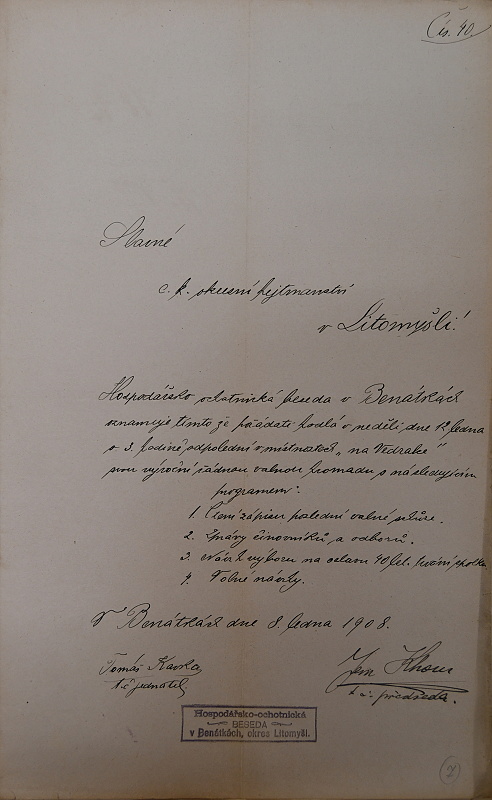 Čís. 40.
Slavné
c. k. okresní hejtmanství
v Litomyšli!
Hospodářsko ochotnická beseda v Benátkách
oznamuje tímto že pořádati hodlá v neděli dne 12. ledna
o 3. hodině odpolední v místnostech „na Vedrale"
svou výroční řádnou valnou hromadu s následujícím
programem:
1. Čtení zápisu poslední valné schůze.
2. Zprávy činovníků a odborů.
3. Návrh výboru na oslavu 40 let. trvání spolku
4. Volné návrhy.
V Benátkách dne 8. ledna 1908.
Tomáš Kavka
t. č. jednatel
Jan
t. č. předseda.
Hospodářsko-ochotnická
BESEDA
v Benátkách, okres Litomyšl.